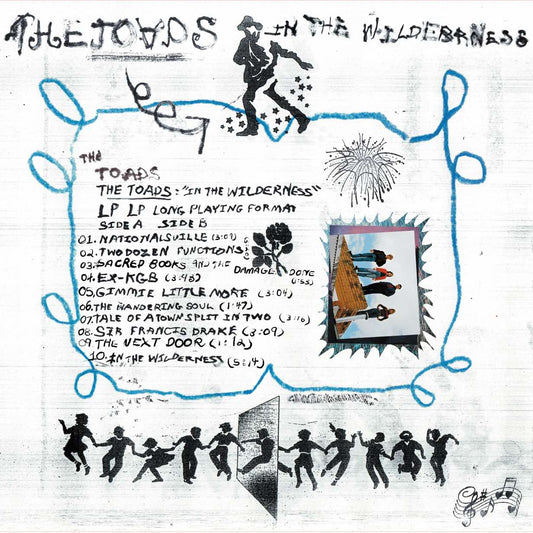 THE TOADS IN THE WILDERNESS
THE
TOADS
THE TOADS: "IN THE WILDERNESS"
LP LP LONG PLAYING FORMAT
SIDE A SIDE B
01. NATIONALSVILLE
02. TWO DOZEN FUNCTIONS
03. SACRED BOOKS AND THE DAMAGE DONE
04. EX-KGB (3:43)
05. GIMMIE LITTLE MORE (3:04)
06. THE WANDERING SOUL (1:47)
07. TALE OF A TOWN SPLIT IN TWO (3:16)
08. SIR FRANCIS DRAKE (3:09)
09 THE NEXT DOOR (1:12)
10. IN THE WILDERNESS (5:14)